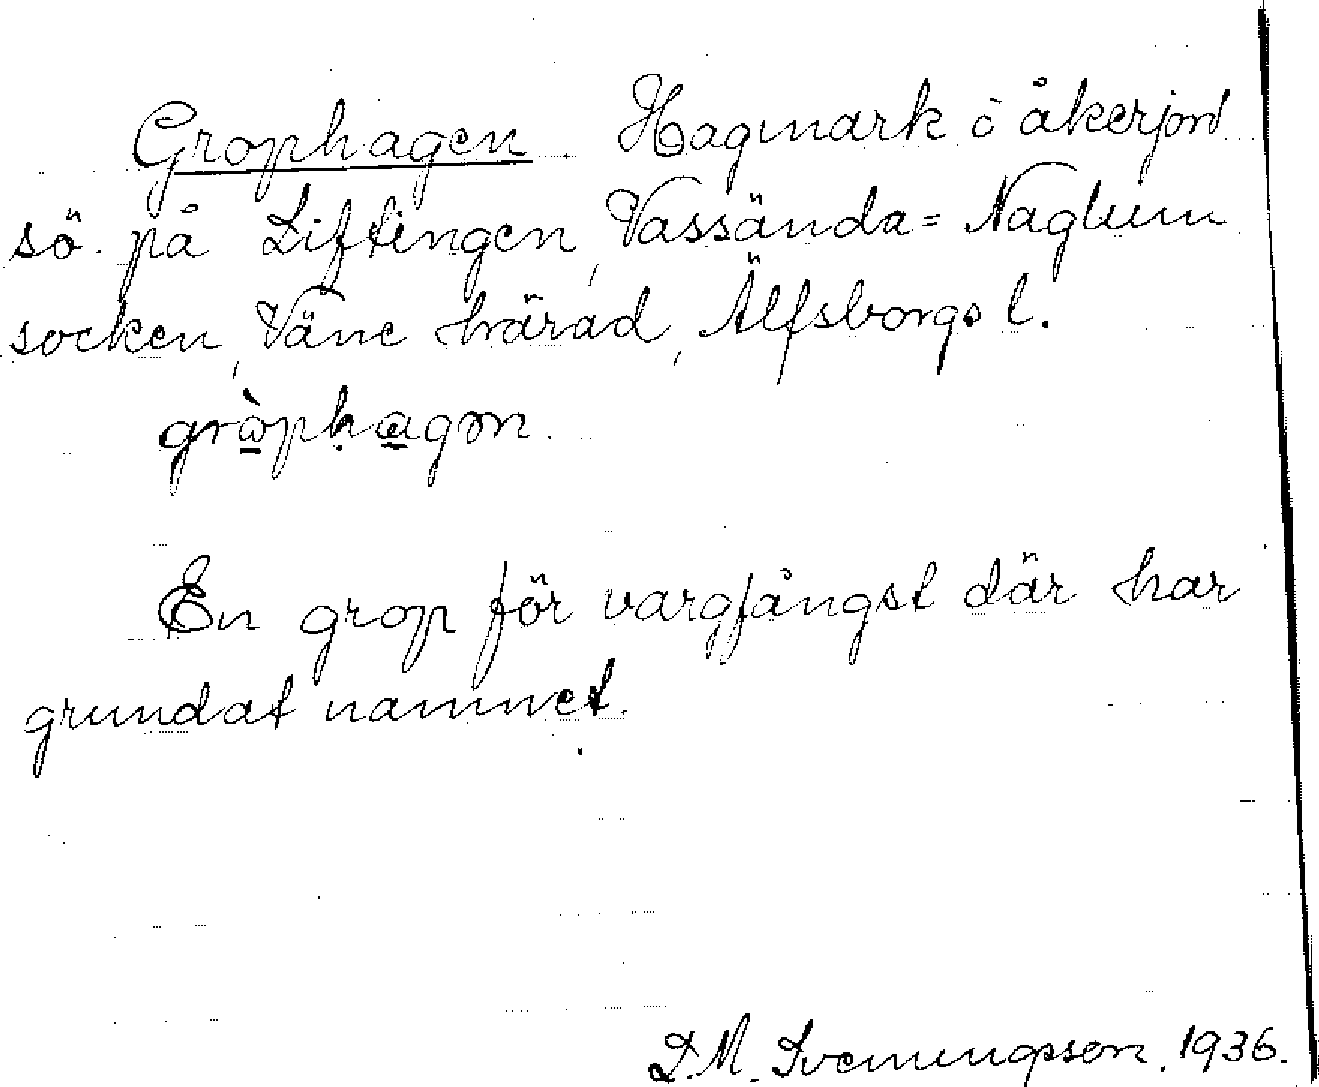 Grophagen Hagmark o åkerjord
sö. på Liftingen, Vassända=Naglum
socken, Väne härad, Älfsborgs l.
En grop för vargfångst där har
grundat namnet.
D.M. Svenungsson. 1936.